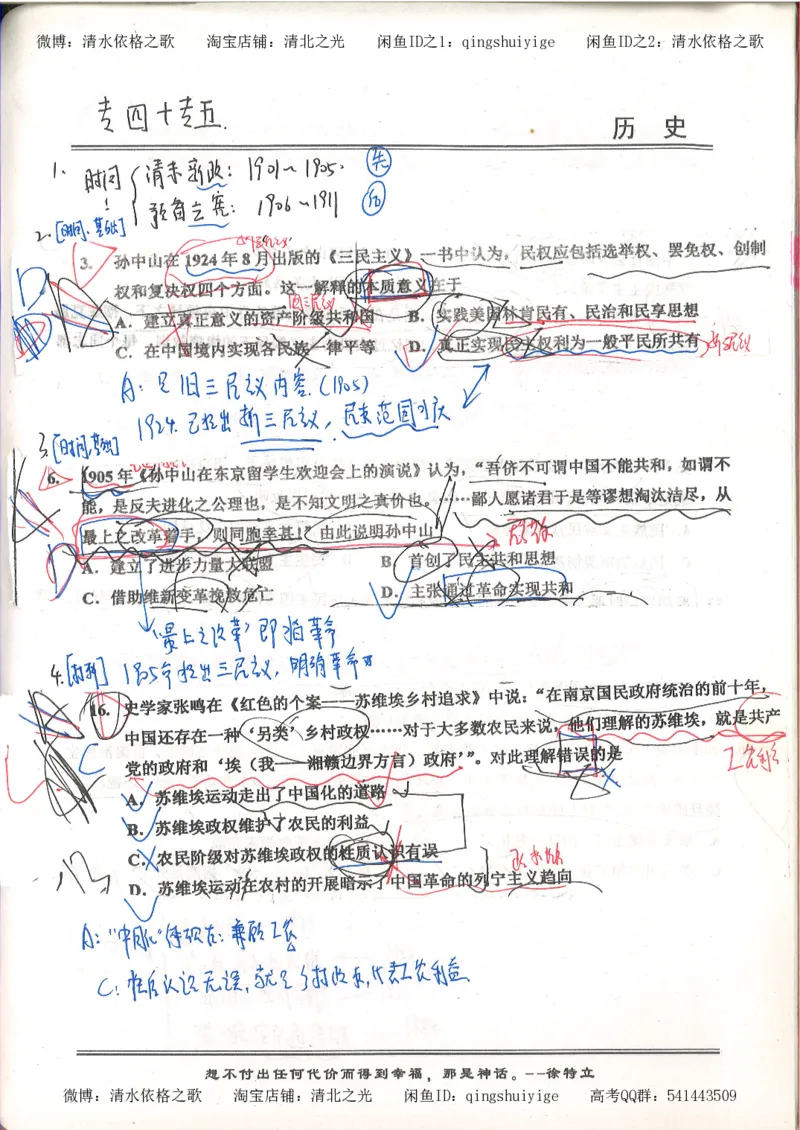 微博：清水依格之歌 淘宝店铺：清北之光 闲鱼ID之1：qingshuiyige 闲鱼ID之2：清水依格之歌
专四十专五.
历 史
1. 时间 清末新政：1901~1905. 先
! 预备立宪：1906~1911 后
2. [时间、基础]
3. 孙中山在 1924 年 8 月出版的《三民主义》一书中认为，民权应包括选举权、罢免权、创制
权和复决权四个方面。这一解释的本质意义在于
旧三民主义
A．建立真正意义的资产阶级共和国 B．实践美国林肯民有、民治和民享思想
C．在中国境内实现各民族一律平等 D．真正实现民主权利为一般平民所共有 新三民主义
A：是旧三民主义内容.（1905）
1924. 已提出新三民主义，民主范围扩大
3. [时间,基础]
6. 1905 年《孙中山在东京留学生欢迎会上的演说》认为，“吾侪不可谓中国不能共和，如谓不
能，是反夫进化之公理也，是不知文明之真价也。……鄙人愿诸君于是等谬想淘汰洁尽，从
最上之改革着手，则同胞幸甚！”由此说明孙中山
A．建立了进步力量大联盟 B．首创了民主共和思想
C．借助维新变革挽救危亡 D．主张通过革命实现共和
“最上之改革”即指革命
4. [材料] 1905年提出三民主义，明确革命
16. 史学家张鸣在《红色的个案——苏维埃乡村追求》中说：“在南京国民政府统治的前十年，
中国还存在一种‘另类’乡村政权……对于大多数农民来说，他们理解的苏维埃，就是共产
党的政府和‘埃（我——湘赣边界方言）政府’”。对此理解错误的是
工农利益
A．苏维埃运动走出了中国化的道路
B．苏维埃政权维护了农民的利益
C．农民阶级对苏维埃政权的性质认识有误
D．苏维埃运动在农村的开展暗示了中国革命的列宁主义趋向
A：“中国化”体现在：兼顾工农
C：性质认识无误，就是乡村政权，代表工农利益
想不付出任何代价而得到幸福，那是神话。--徐特立
微博：清水依格之歌 淘宝店铺：清北之光 闲鱼ID：qingshuiyige 高考QQ群：541443509